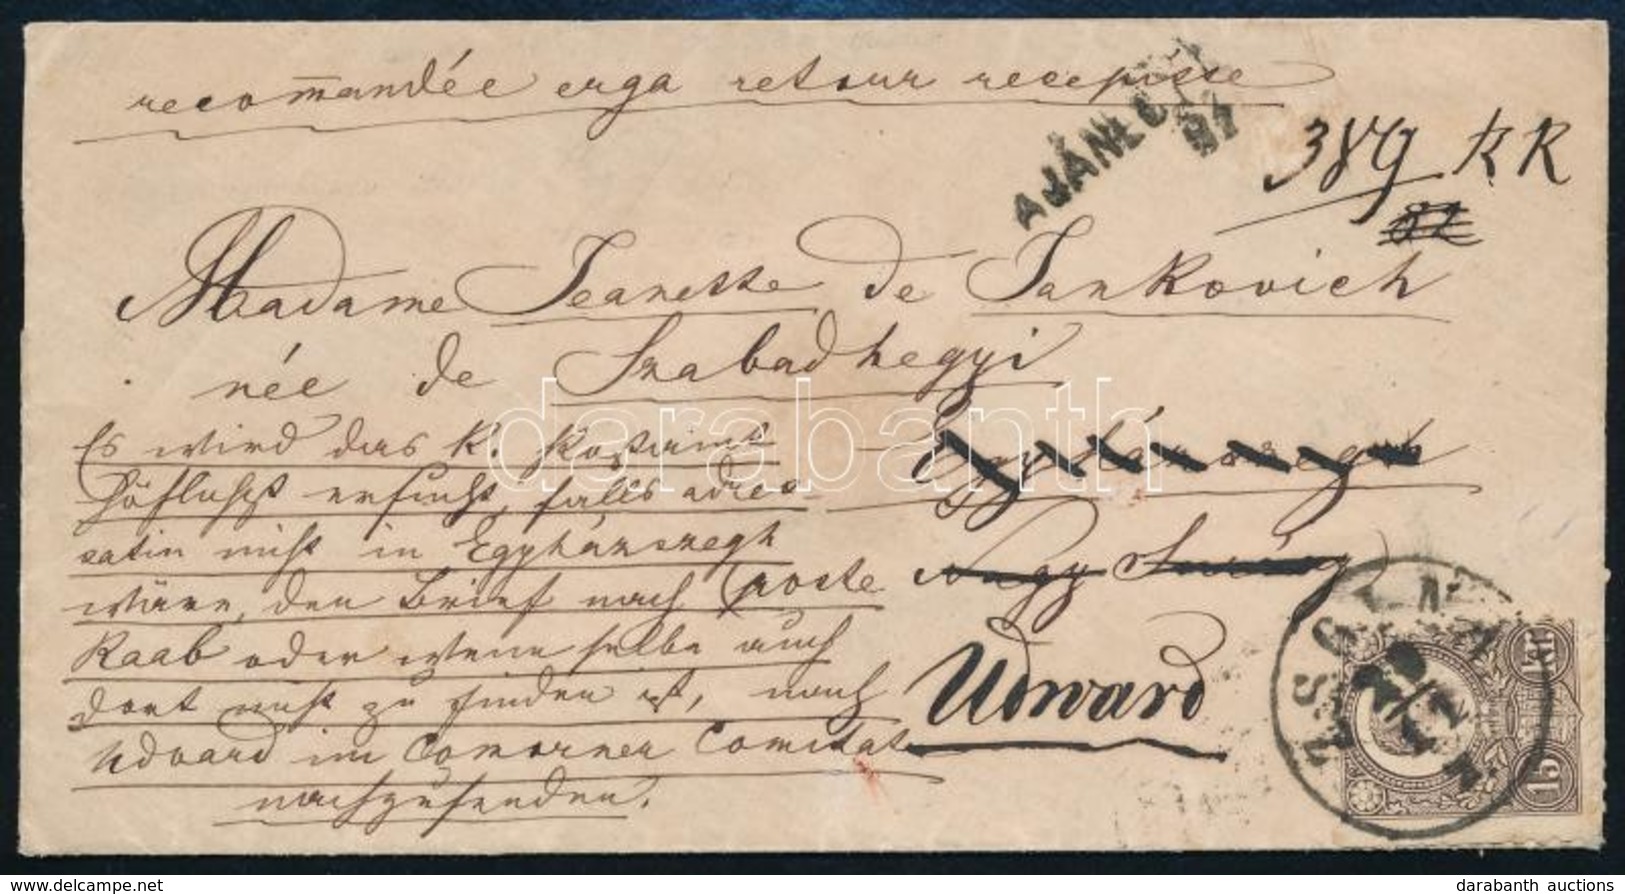 recom̄andée erga retour recepisse
AJÁNLOTT
389 RR
82
Madame Jeanette de Jankovich
née de Szabadhegyi
Es wird das K. Postamt
höflichst ersucht, falls adres-
satin nicht in Egyházszegh
wäre, den Brief nach (poste
Raab oder wenn selbe auch
dort nicht zu finden ist, nach
Udvard im Comorner Comitat
nachzusenden.
Nagy
Udward
ZSOLNA
29/12
15 KR
darabanth
delcampe.net
darabanth auctions